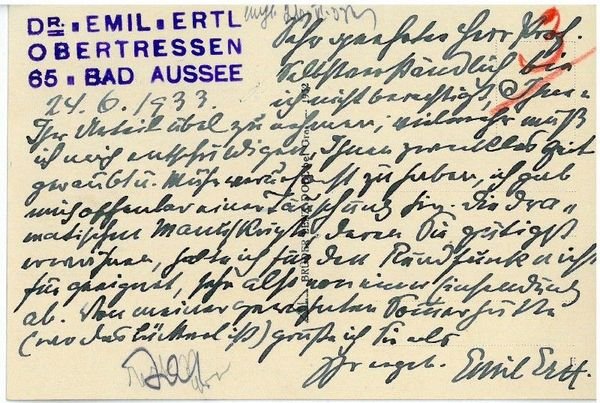 DR. EMIL ERTL
OBERTRESSEN
65 BAD AUSSEE
24.6.1933.
Sehr geehrter Herr Prof.
Selbstverständlich bin
ich nicht berechtigt, Ihnen
Ihr Urteil übel zu nehmen, vielmehr muß
ich mich entschuldigen, Ihnen zwecklos Zeit
geraubt u. Mühe verursacht zu haben, ich gab
mich offenbar einer Täuschung hin. Die dra=
matischen Manuskripte, deren Sie gütigst
erwähnen, halte ich für den Rundfunk nicht
für geeignet, sehe also von einer Einsendung
ab. Von meiner
(wo das ist) grüße ich Sie als
Ihr ergeb. Emil Ertl.
3